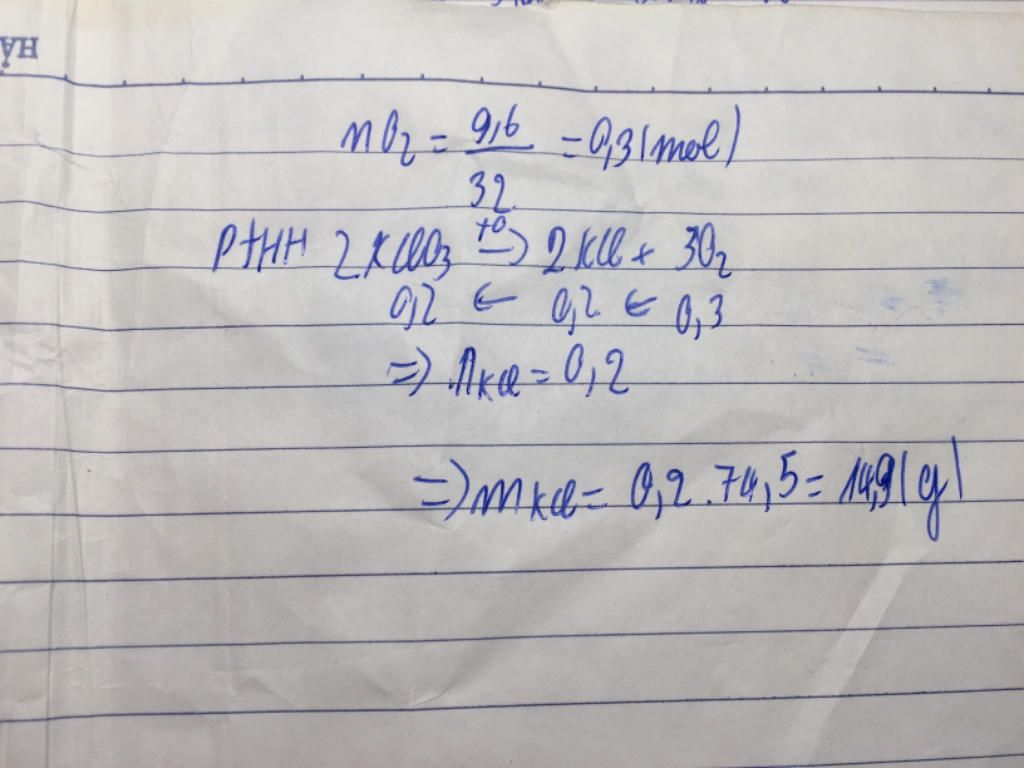 HÂN
nO2 = 9,6 / 32 = 0,3 (mol)
PTHH 2KClO3 to→ 2KCl + 3O2
0,2 ← 0,2 ← 0,3
=> nKCl = 0,2
=> mKCl = 0,2 . 74,5 = 14,9 (g)